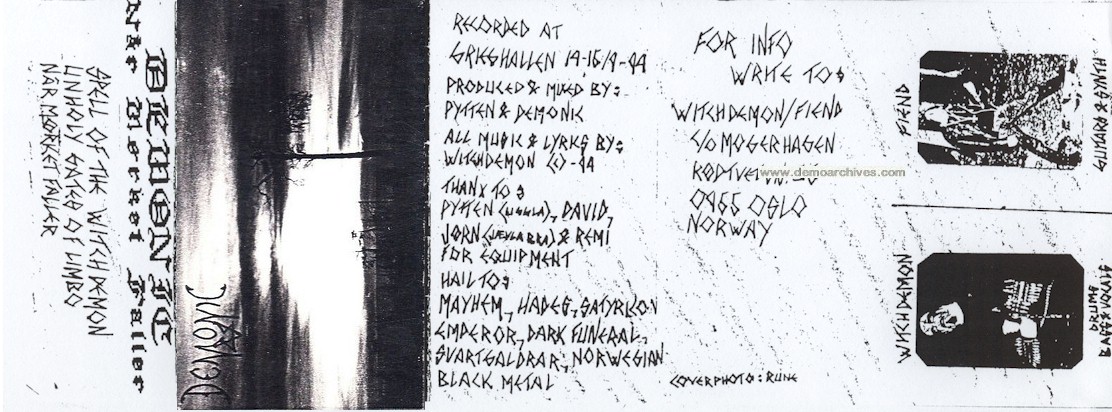 SPELL OF THE WITCHDEMON
UNHOLY GATES OF LIMBO
NÅR MØRKET FALLER
DEMONIC
Når Mørket Faller
DEMONIC
RECORDED AT
GRIEGHALLEN
PRODUCED & MIXED BY:
PYTTEN & DEMONIC
ALL MUSIC & LYRICS BY:
WITCHDEMON (C)-94
THANX TO:
PYTTEN (UGGLA), DAVID,
JØRN & REMI
FOR EQUIPMENT
HAIL TO:
MAYHEM, HADES, SATYRICON
EMPEROR, DARK FUNERAL,
SVARTGALDRAR, NORWEGIAN
BLACK METAL
FOR INFO
WRITE TO:
WITCHDEMON/FIEND
C/O MOGERHAGEN
www.demoarchives.com
0955 OSLO
NORWAY
COVERPHOTO: RUNE
FIEND
GUITARS &
WITCHDEMON
DRUMS
BASS & VOCALS